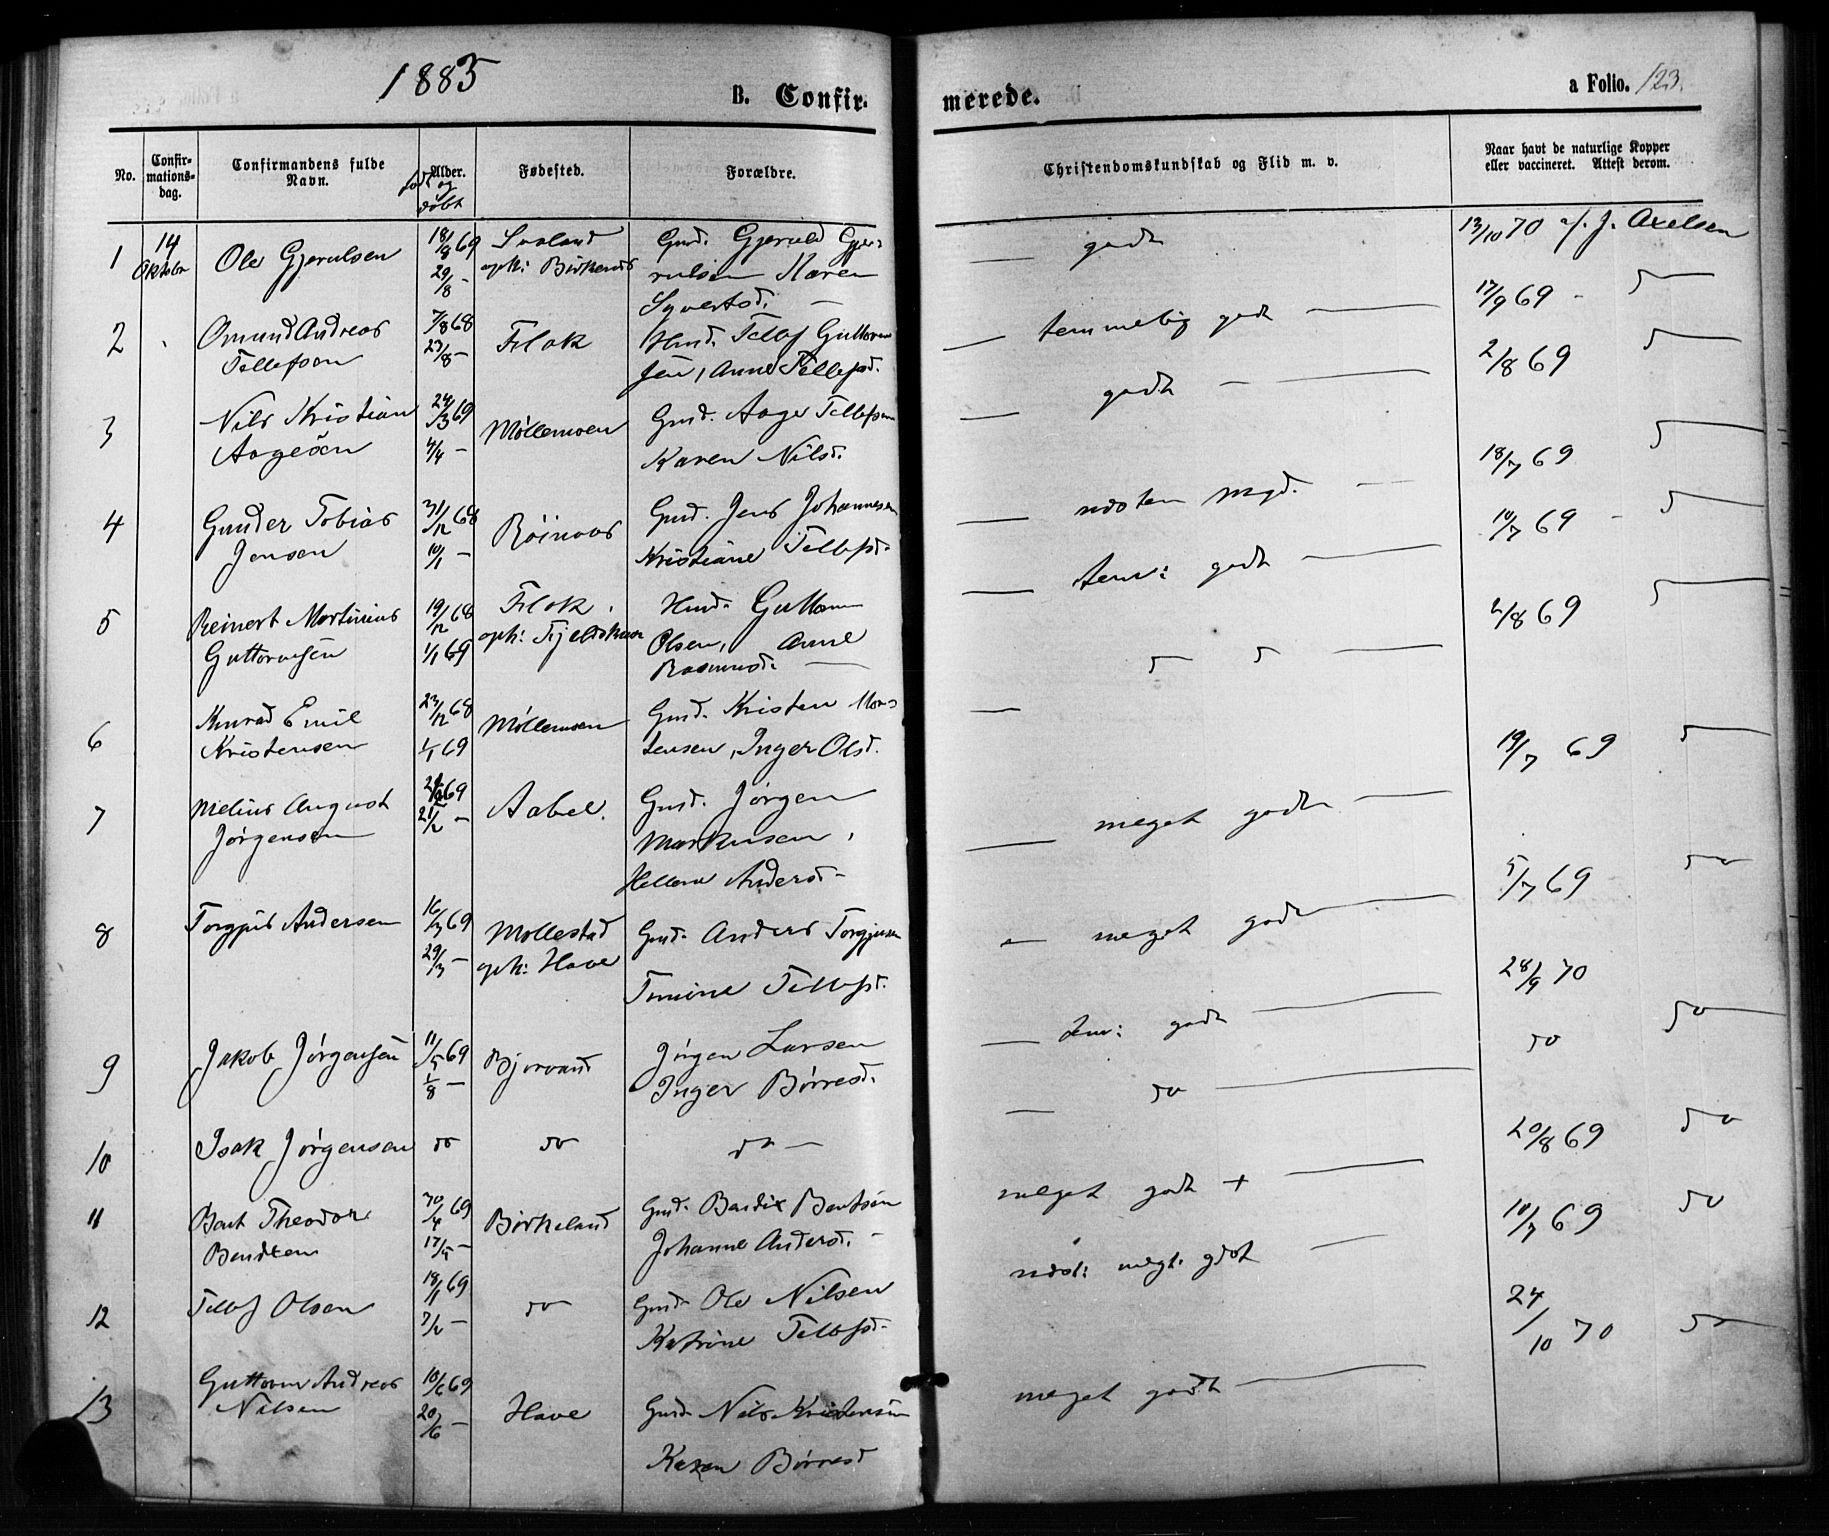 1883
B. Confir-
merede.
a Folio. 123.
No.
Confir-
mations-
dag.
Confirmandens fulde
Navn.
Alder.
født og
døbt
Fødested.
Forældre.
Christendomskundskab og Flid m. v.
Naar havt de naturlige Kopper
eller vaccineret. Attest derom.
1 14 Oktober Ole Gjerulsen 18/8 69 29/8 - opt: Birkenes Gmd. Gjeruld Gje-
rulsen Karen
Syvertsd. —
— godt 13/10 70 af J. Axelsen
2 Omund Andreas
Tellefsen 7/8 68 23/8 - Flak Hmd. Tellef Guttorm
sen, Anne Tellefsd.
— temmelig godt — 17/9 69 - do
3 Nils Kristian
Aagesen 24/3 69 4/4 - Møllemoen Gmd. Aage Tellefsen
Karen Nilsd.
— godt — 2/8 69 do
4 Gunder Tobias
Jensen 31/12 68 10/1 - Røinaas Gmd. Jens Johannesen
Kristiane Tellefsd.
— næsten megd. — 18/7 69 do
5 Reinert Martinius
Guttormsen 19/12 68 1/1 69 Flak. Hmd. Guttorm
Olsen, Anne
Rasmusd. —
— tem: godt — 10/7 69 - do
6 Konrad Emil
Kristensen 23/12 68 1/1 69 Møllemoen Gmd. Kristen Mor-
tensen, Inger Olsd.
— do do — 2/8 69 do
7 Melius August
Jørgensen 69 21/2 - Aabel. Gmd. Jørgen
Markusen,
Hellene Andersd -
— meget godt — 19/7 69 do
8 Torgjus Andersen 16/3 69 29/3 - Mollestad
opt: Have Gmd. Anders Torgjusen
Tellefsd.
— meget godt — 5/7 69 do
9 Jakob Jørgensen 11/5 69 1/8 - Bjorvand Jørgen Larsen
Inger Børresd.
— tem: godt — 28/9 70 do
10 Isak Jørgensen do do do —
— do — do
11 Bent Theodor
Bendtsen 30/4 69 17/5 - Birkeland Gmd. Bendix Bentsen
Johanne Andersd. -
meget godt + — 20/8 69 do
12 Tellef Olsen 18/1 69 7/2 - do Gmd. Ole Nilsen
Katrine Tellefsd.
næst: megt. godt — 10/7 69 do
13 Guttorm Andreas
Nilsen 10/6 69 20/6 - Have Gmd. Nils Kristensen
Karen Børresd
meget godt — 24/10 70 do